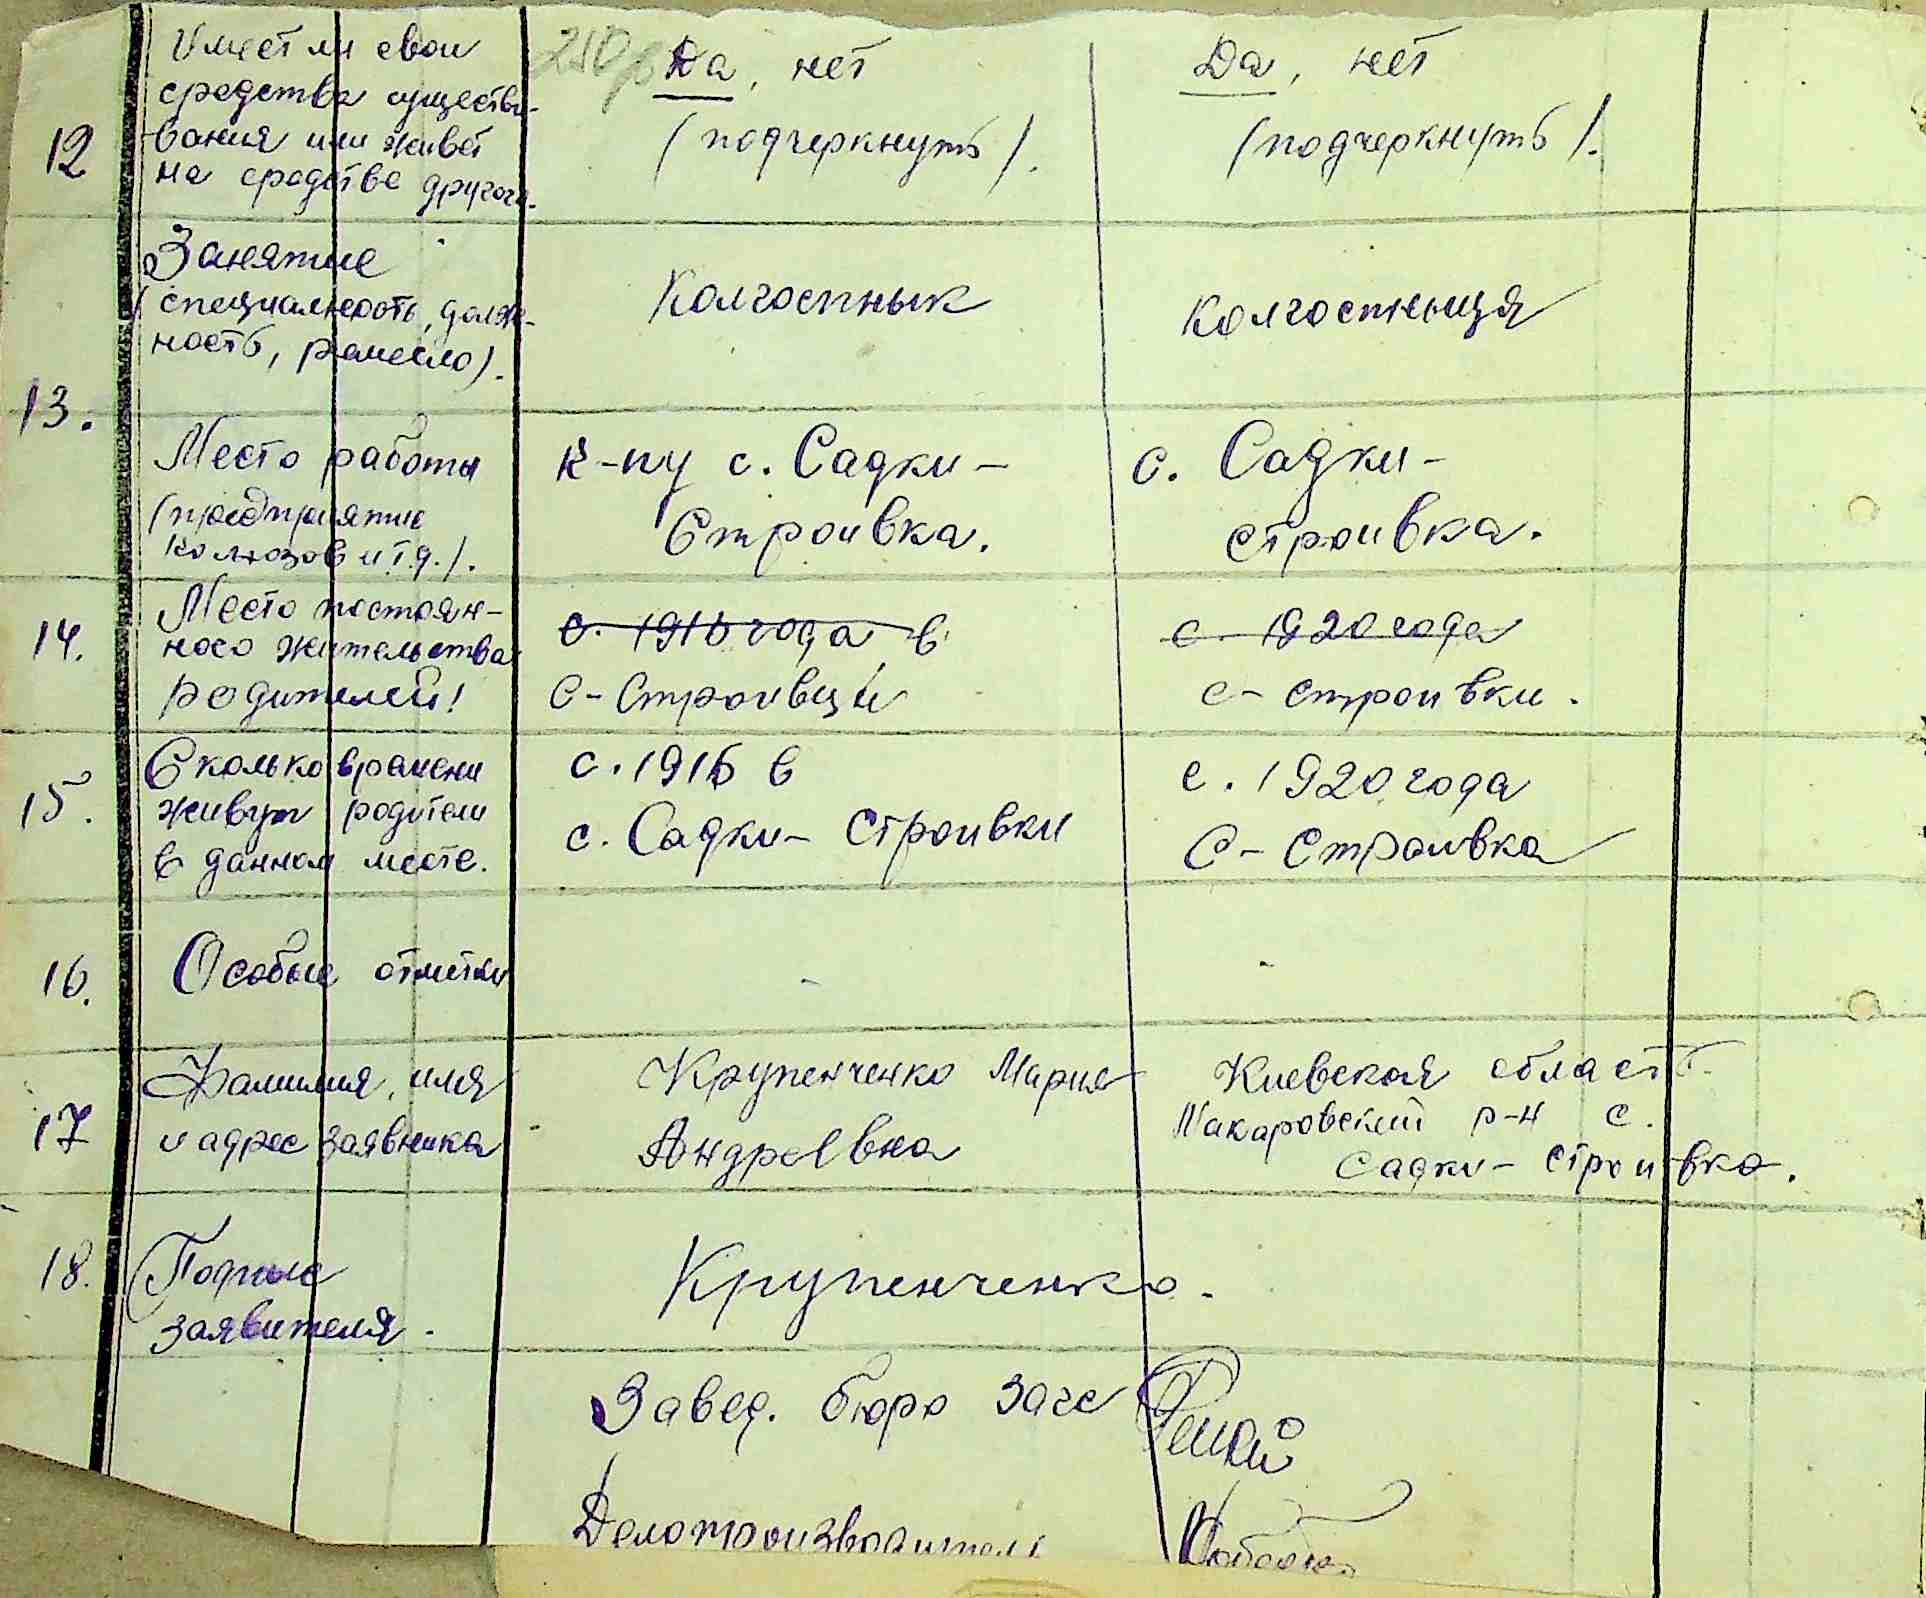 12
Имеет ли свои
средства существо-
вания или живет
на средства другого.
Да, нет
(подчеркнуть).
Да, нет
(подчеркнуть).
13.
Занятие
(специальность, долж-
ность, ремесло).
Колгоспнык
колгоспныця
Место работы
(предприятие
колхозов и т.д.).
к-пу с. Садки-
Строивка.
с. Садки-
строивка.
14.
Место постоян-
ного жительства
родителей!
с. 1916 года в
С-Строивци
с. 1920 года
с-строивки.
15.
Сколько времени
живут родители
в данном месте.
с. 1916 в
с. Садки-строивки
с. 1920 года
С-Строивка
16.
Особые отметки
-
-
17
Фамилия, имя
и адрес заявника
Крупенченко Мария
Андреевна
Киевская область
Макаровский р-н с.
Садки-строивка.
18.
Подпись
заявителя.
Крупенченко.
Завед. бюро загс
Делопроизводитель